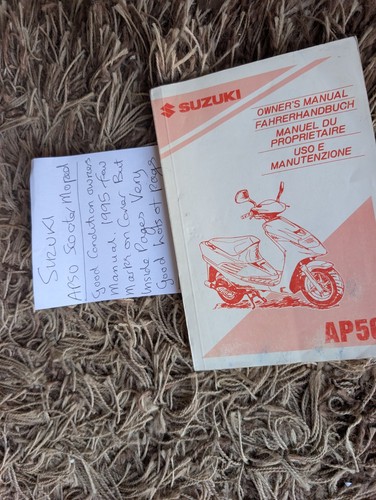 SUZUKI
AP50 Scooter Moped
Good Condition owners
Manual 1995 Few
Marks on Cover But
inside Pages Very
Good Lots of Pages
SUZUKI
OWNER'S MANUAL
FAHRERHANDBUCH
MANUEL DU
PROPRIETAIRE
USO E
MANUTENZIONE
AP50